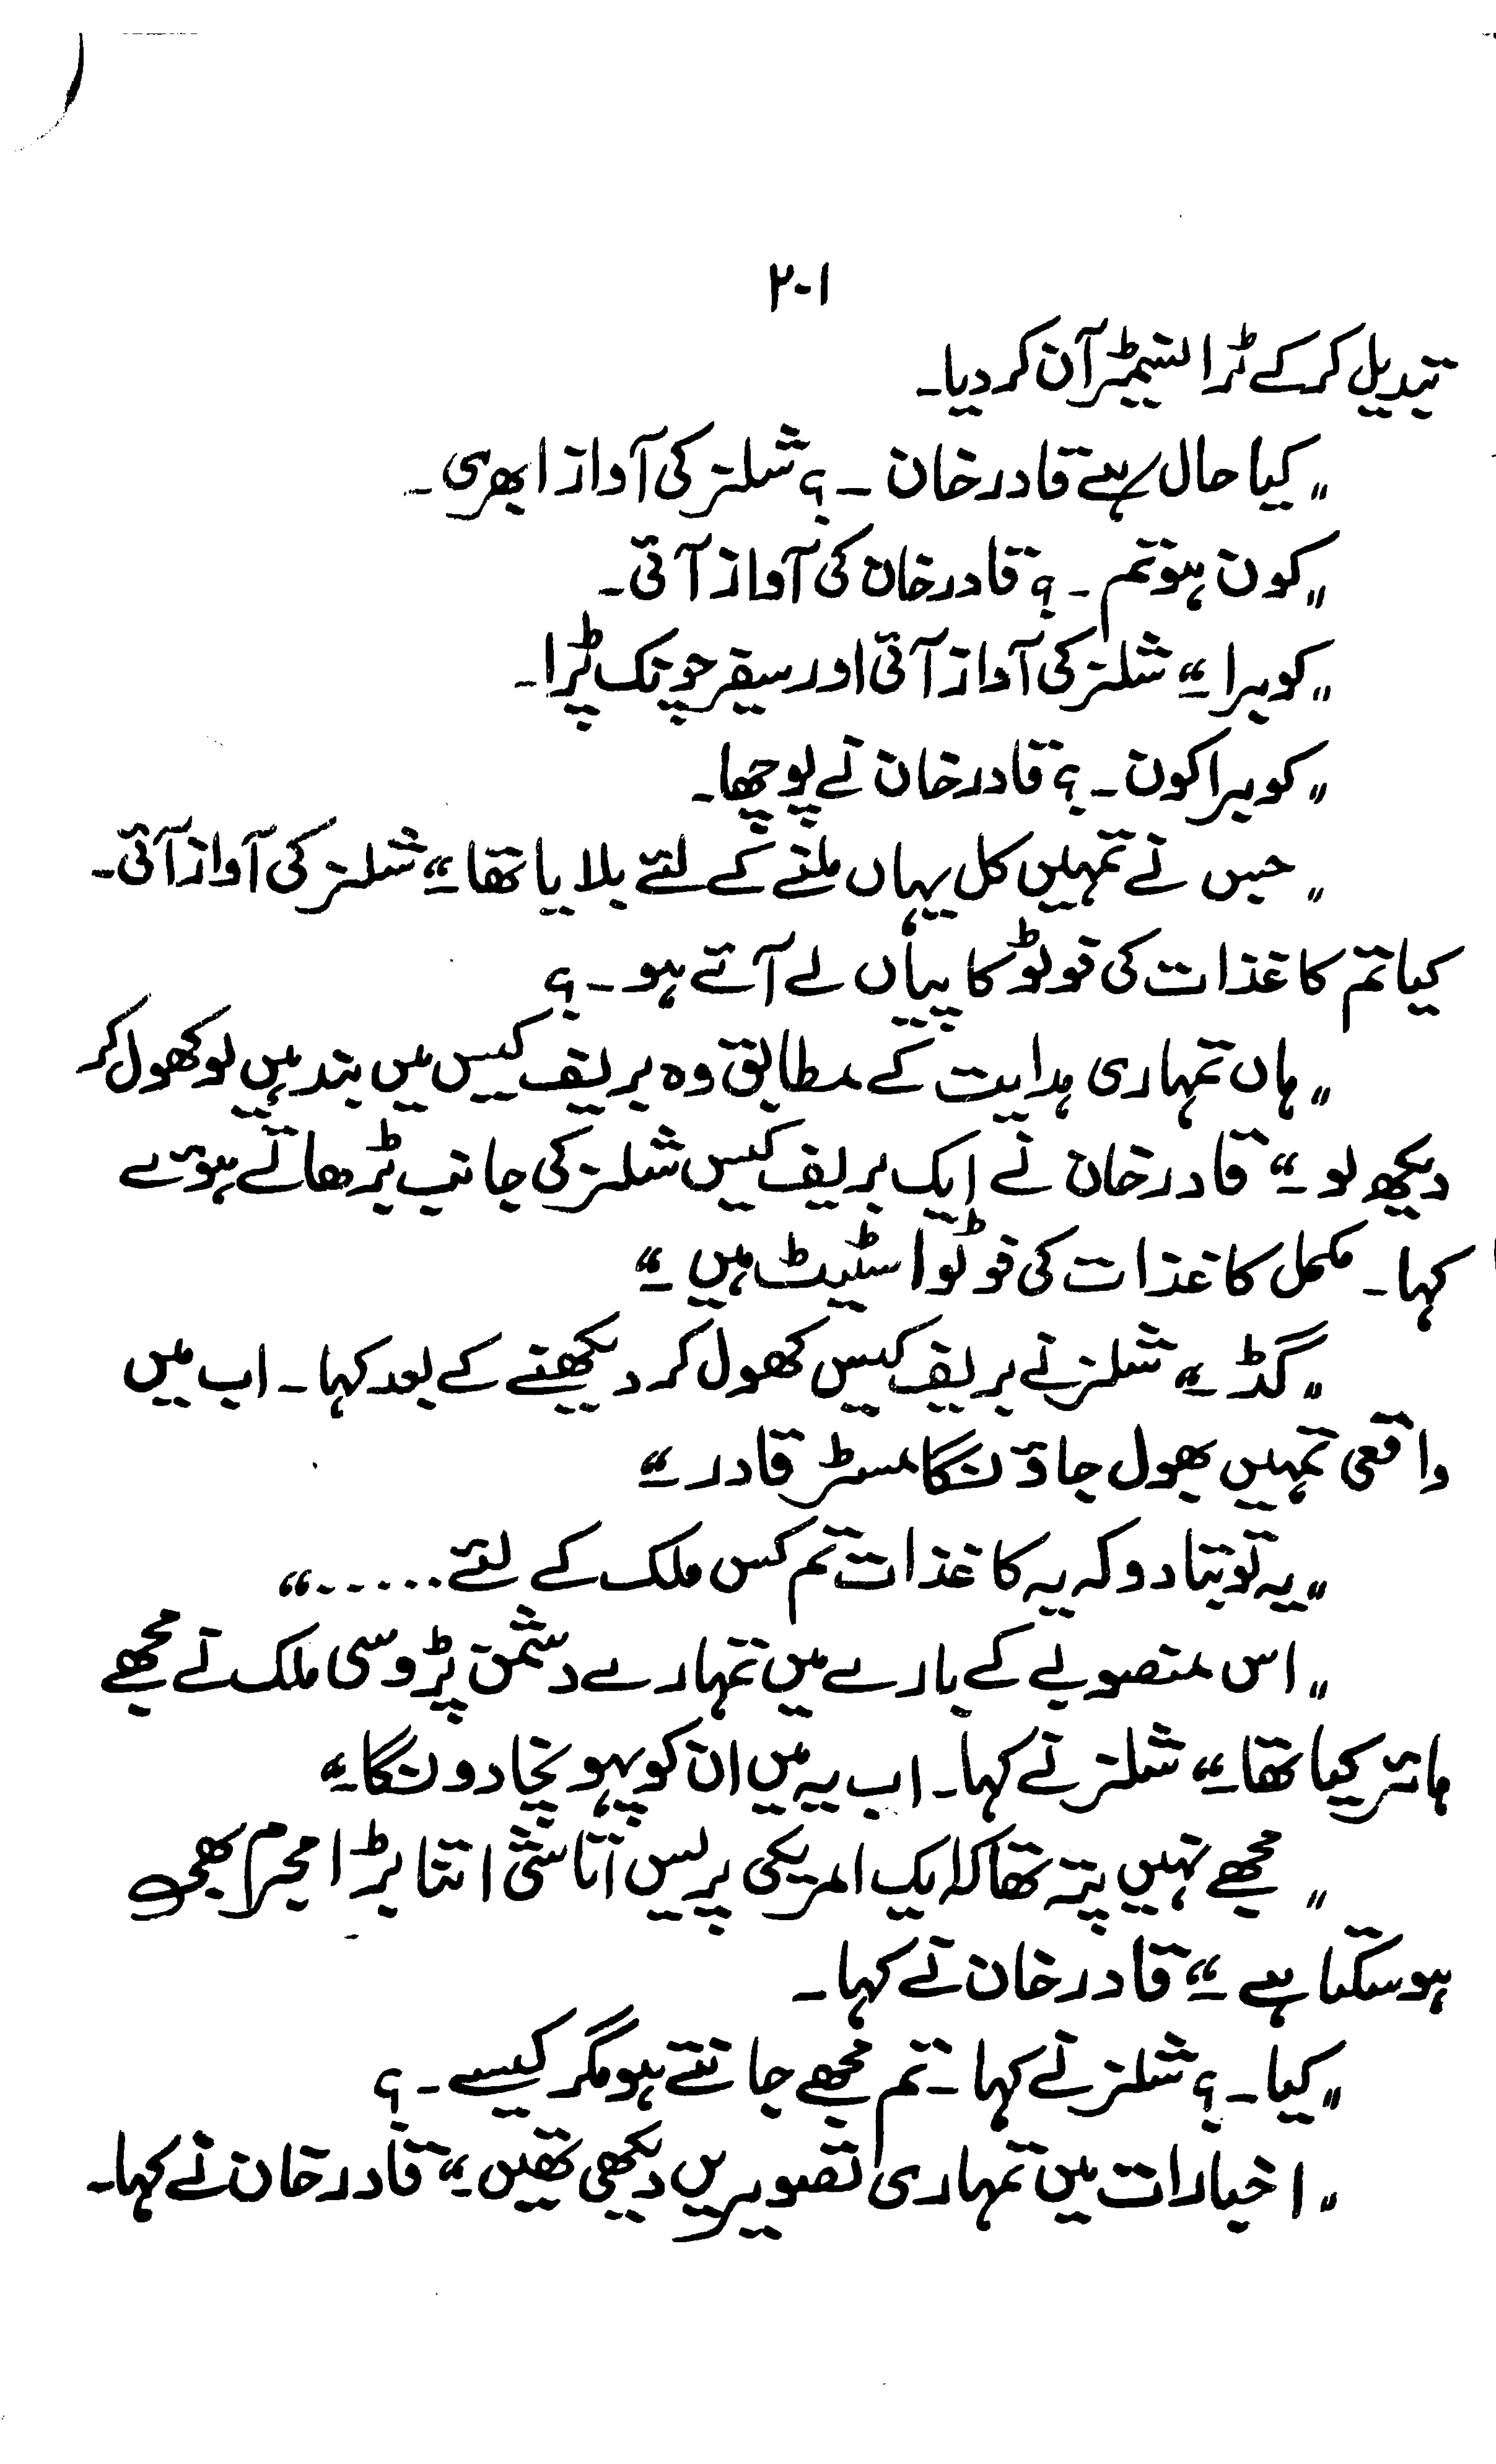 ۲۰۱
تبدیل کر کے ٹرانسیمٹر آن کر دیا۔
"کیا حال ہے قادر خان ۔؟ شلنر کی آواز ابھری۔
"کون ہو تم ۔؟ قادر خان کی آواز آئی۔
"کوبرا ۔" شلنر کی آواز آئی اور سیفر چونک پڑا۔
"کوبرا کون ۔؟ قادر خان نے پوچھا۔
"جس نے تمہیں کل یہاں ملنے کے لئے بلایا تھا ۔" شلنر کی آواز آئی۔
کیا تم کاغذات کی فوٹو کاپیاں لے آئے ہو ۔؟
"ہاں تمہاری ہدایت کے مطابق وہ بریف کیس میں بند ہیں لو کھول کر
دیکھ لو ۔" قادر خان نے ایک بریف کیس شلنر کی جانب بڑھاتے ہوئے
کہا۔ مکمل کاغذات کی فوٹو اسٹیٹ ہیں ۔"
"گڈ ۔" شلنر نے بریف کیس کھول کر دیکھنے کے بعد کہا۔ اب میں
واقعی تمہیں بھول جاؤنگا مسٹر قادر ۔"
"یہ تو بتا دو کہ یہ کاغذات تم کس ملک کے لئے ......"
"اس منصوبے کے بارے میں تمہارے دشمن پڑوسی ملک نے مجھے
ہائر کیا تھا ۔" شلنر نے کہا۔ اب یہ میں ان کو پہونچا دونگا ۔"
"مجھے نہیں پتہ تھا کہ ایک امریکی پریس اتاشی اتنا بڑا مجرم بھی
ہو سکتا ہے ۔" قادر خان نے کہا۔
"کیا ۔؟ شلنر نے کہا ۔ تم مجھے جانتے ہو مگر کیسے ۔؟
"اخبارات میں تمہاری تصویریں دیکھی تھیں ۔" قادر خان نے کہا۔